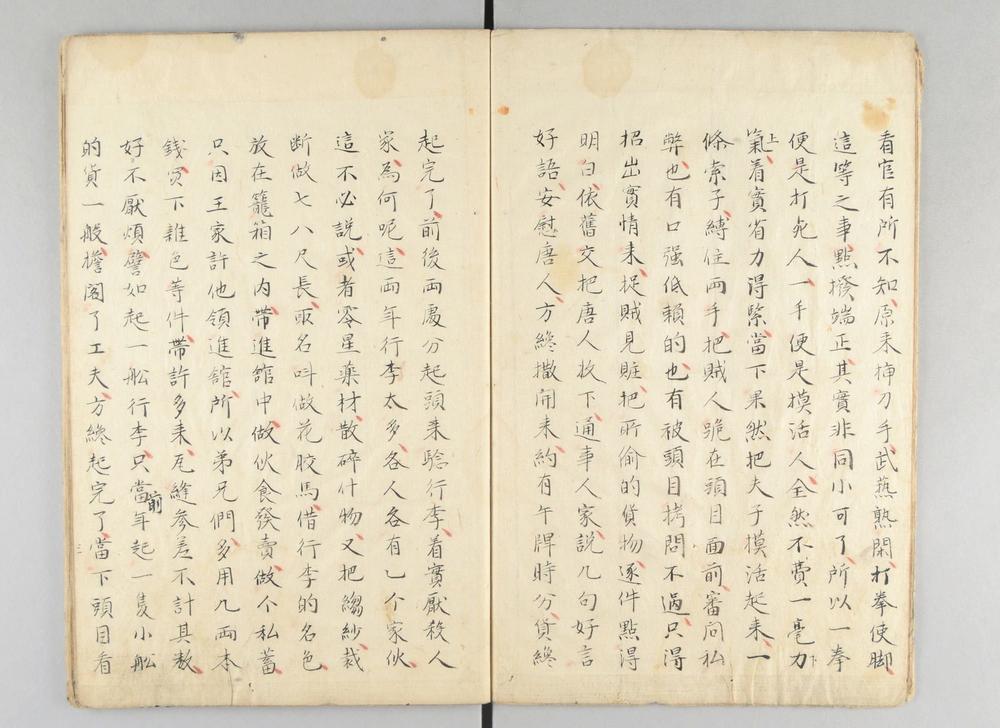 看官有所不知原来揷刀手武藝熟閑打拳使脚
這等之事點撥端正其實非同小可了所以一拳
便是打死人一手便是摸活人全然不費一毫力
氣上着實省力得緊當下果然把大子摸活起来一
條索子縛住両手把賊人跪在頭目面前審问私
弊也有口强低賴的也有被頭目拷問不過只得
招出實情来捉賊見賍把所偷的貨物逐件點得
明白依舊交把唐人收下通事人家説几句好言
好語安慰唐人方纔撒開来約有午牌時分貨纔
起完了前後両處分起頭来騐行李着實厭殺人
家為何呢這両年行李太多各人各有乙个家伙
這不必説或者零星藥材散碎什物又把縐紗裁
断做七八尺長取名呌做花胶馬借行李的名色
放在籠箱之内帶進舘中做伙食發賣做个私蓄
只因王家許他領進舘所以弟兄們多用几両本
錢買下雜色等件帶許多来尾縫參差不計其数
好不厭煩譬如起一舩行李只當前年起一隻小舩
的貨一般擔阁了工夫方纔起完了當下頭目看